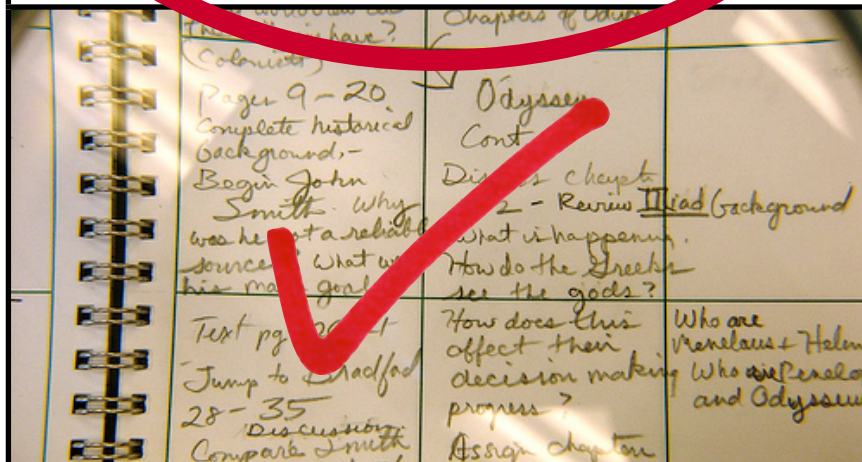 they have?
(Colonists)
Pages 9-20
Complete historical
background,-
Begin John
Smith. Why
was he not a reliable
source? What
his main goal
Text pg
Jump to Bradford
28-35
Discussion
Compare Smith
Chapters of
Odyssey
Cont
Discuss chapt
2 - Review Iliad background
What is happening.
How do the Greeks
see the gods?
How does this
affect their
decision making
progress?
Assign chapter
Who are
Menelaus + Helen
Who are
and Odysseus